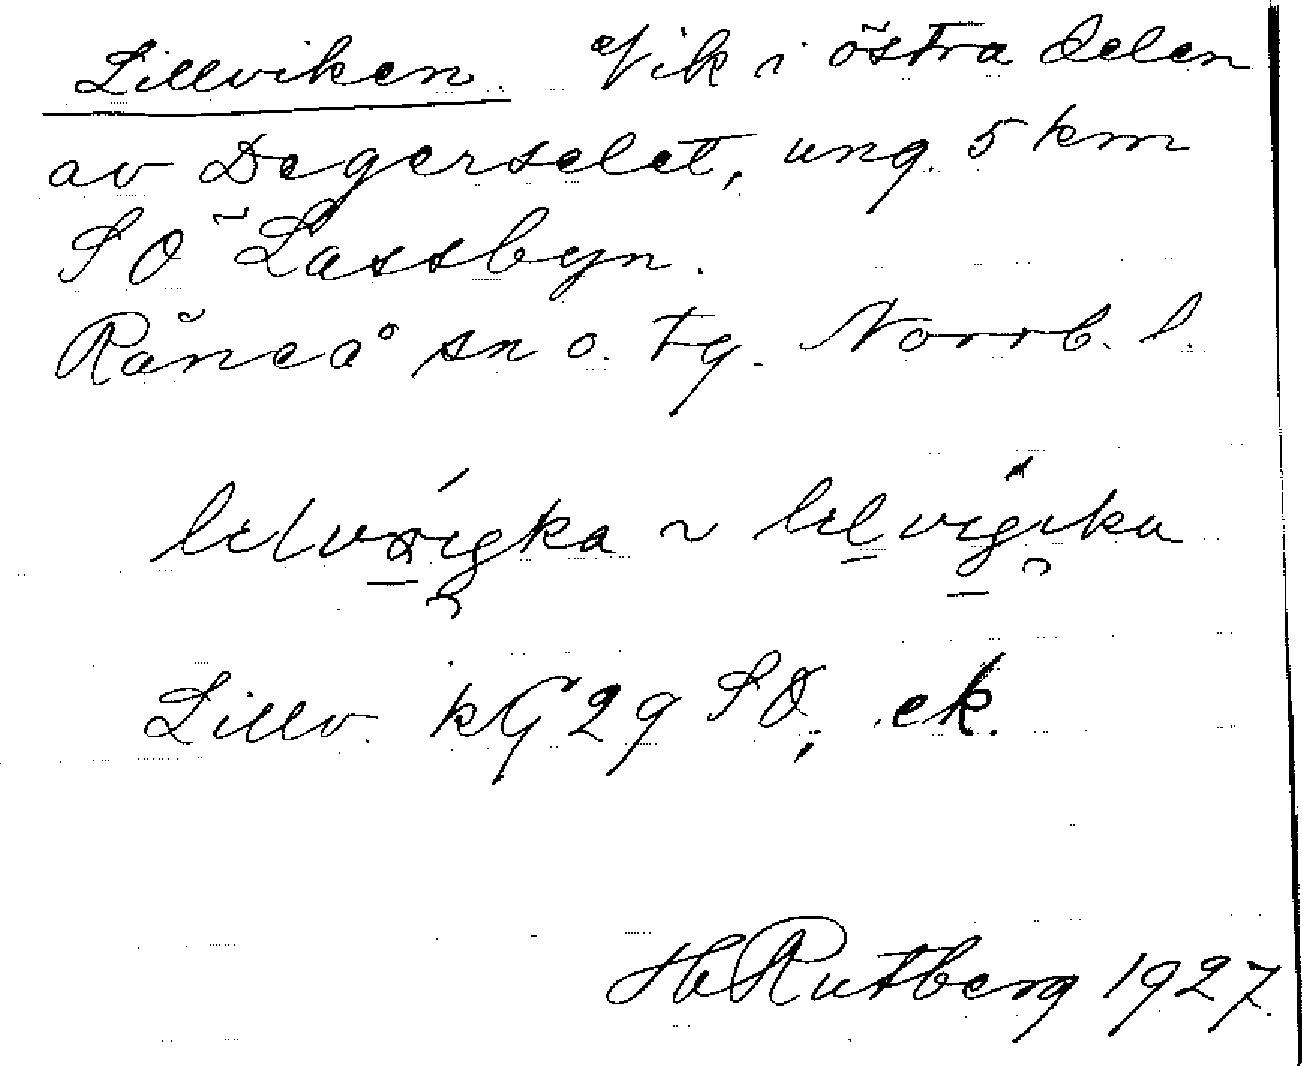 Lillviken. Vik i östra delen
av Degerselet, ung. 5 km
SO Lassbyn.
Råneå sn o. tg. Norrb. l.
Lillv. kG29 SO, ek.
H Rutberg 1927.